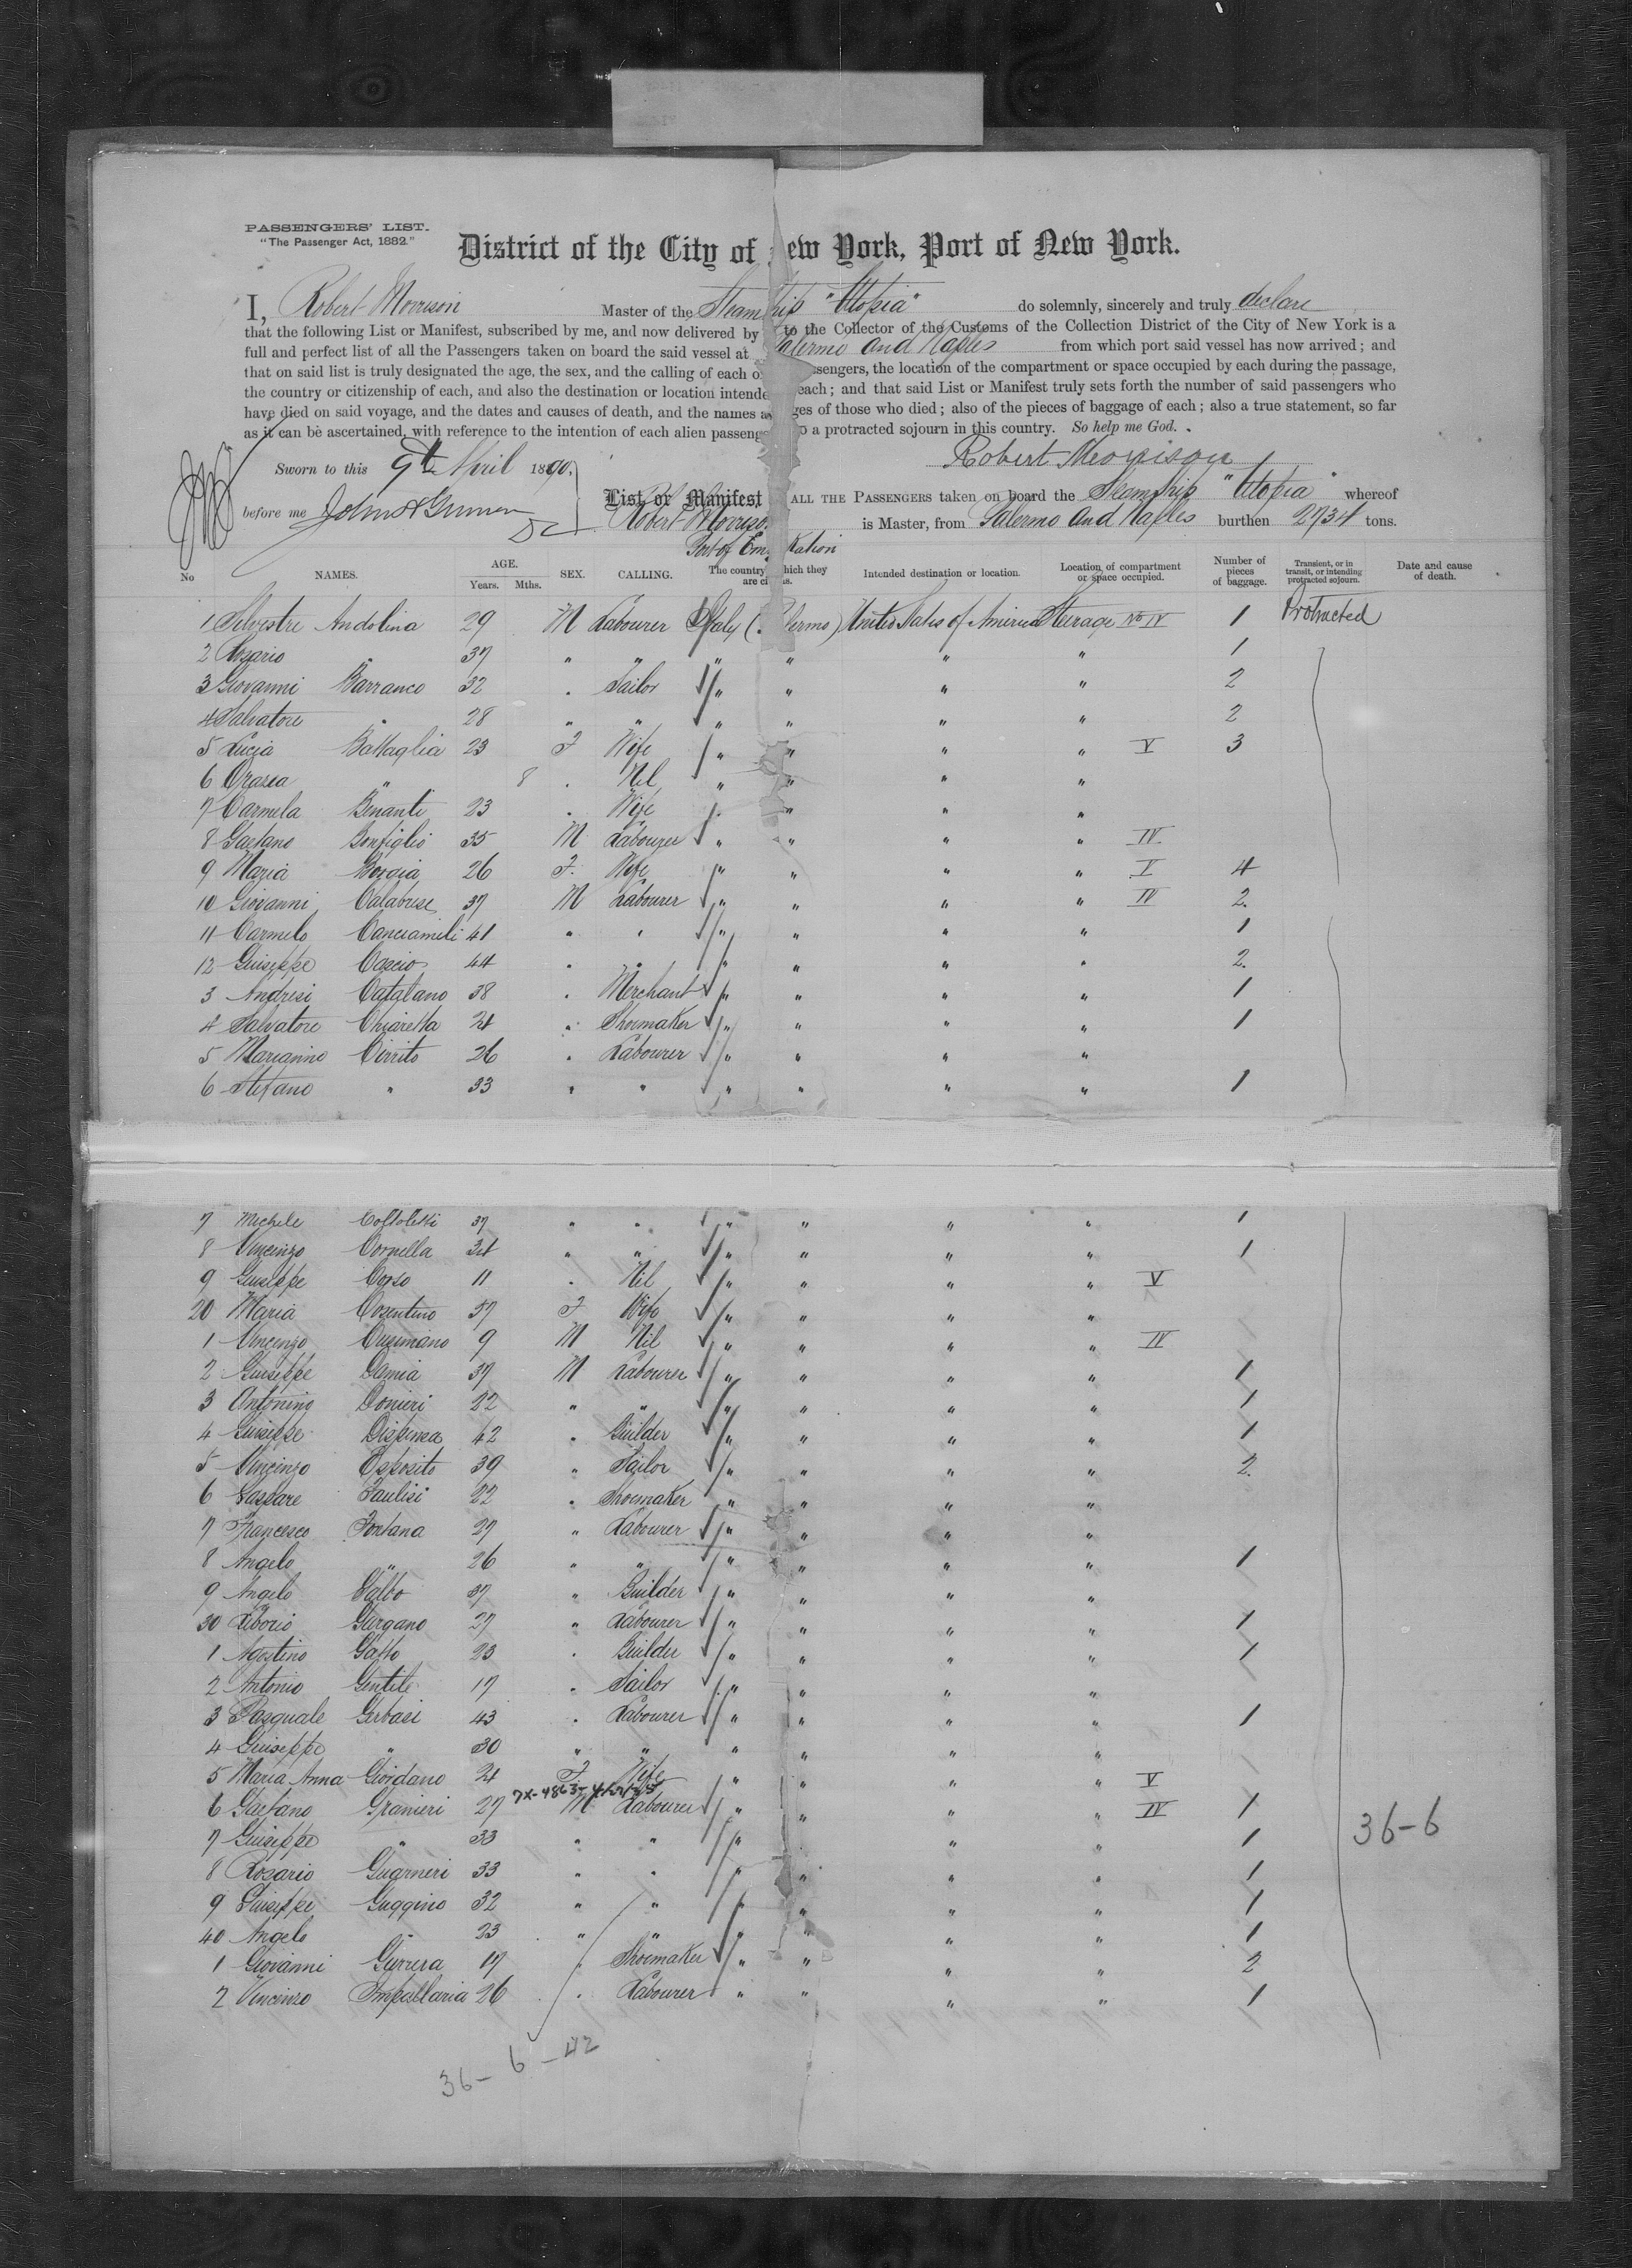 PASSENGERS' LIST.
"The Passenger Act, 1882."
District of the City of New York, Port of New York.
I, Robert Morrison Master of the Steamship "Utopia" do solemnly, sincerely and truly declare
that the following List or Manifest, subscribed by me, and now delivered by to the Collector of the Customs of the Collection District of the City of New York is a
full and perfect list of all the Passengers taken on board the said vessel at Palermo and Naples from which port said vessel has now arrived; and
that on said list is truly designated the age, the sex, and the calling of each of passengers, the location of the compartment or space occupied by each during the passage,
the country or citizenship of each, and also the destination or location intended each; and that said List or Manifest truly sets forth the number of said passengers who
have died on said voyage, and the dates and causes of death, and the names ages of those who died; also of the pieces of baggage of each; also a true statement, so far
as it can be ascertained, with reference to the intention of each alien passenger to a protracted sojourn in this country. So help me God.
Sworn to this 9th April 1890, Robert Morrison
before me John
List or Manifest ALL THE PASSENGERS taken on board the Steamship "Utopia" whereof
Robert Morrison is Master, from Palermo and Naples burthen 2734 tons.
Port of Embarkation
No NAMES. AGE. Years. Mths. SEX. CALLING. The country which they are citizens. Intended destination or location. Location of compartment or space occupied. Number of pieces of baggage. Transient, or in transit, or intending protracted sojourn. Date and cause of death.
1 Silvestre Andolina 29 M Labourer Italy (Palermo) United States of America Steerage No IV 1 Protracted
2 Rosario " 37 " " " " " " 1
3 Giovanni Barranco 32 " Tailor " " " " 2
4 Salvatore " 28 " " " " " " 2
5 Lucia Battaglia 23 F Wife " " " " V 3
6 Orazia " 8 " Nil " " " "
7 Carmela Benanti 23 " Wife " " " "
8 Gaetano Bonfiglio 35 M Labourer " " " " IV
9 Maria Borgia 26 F. Wife " " " " V 4
10 Giovanni Calabrese 37 M Labourer " " " " IV 2.
11 Carmelo Canciamili 41 " " " " " " 1
12 Giuseppe Cascio 44 " " " " " " 2.
3 Andresi Catalano 38 " Merchant " " " " 1
4 Salvatore Chiaretta 24 " Shoemaker " " " " 1
5 Marianno Cirrito 26 " Labourer " " " "
6 Stefano " 33 " " " " " " 1
7 Michele 37 " " " " " " 1
8 Vincenzo Cornella 34 " " " " " " 1
9 Giuseppe Corso 11 " Nil " " " " V
20 Maria Cosentino 57 F Wife " " " "
1 Vincenzo Cusimano 9 M Nil " " " " IV
2 Giuseppe Damia 37 M Labourer " " " " 1
3 Antonino Donieri 22 " " " " " " 1
4 Giuseppe Dispensa 42 " Builder " " " " 1
5 Vincenzo Esposito 39 " Tailor " " " " 2.
6 Gaspare Faulisi 22 " Shoemaker " " " "
7 Francesco Fontana 27 " Labourer " " " "
8 Angelo " 26 " " " " " " 1
9 Angelo Galbo 37 " Builder " " " "
30 Liborio Gargano 27 " Labourer " " " " 1
1 Agostino Gatto 23 " Builder " " " " 1
2 Antonio Gentile 17 " Tailor " " " "
3 Pasquale Gerbasi 43 " Labourer " " " " 1
4 Giuseppe " 30 " " " " " "
5 Maria Anna Giordano 24 F. Wife " " " " V
7X-4863-
6 Gaetano Granieri 27 M Labourer " " " " IV 1
7 Giuseppe " 33 " " " " " " 1
36-6
8 Rosario Guarneri 33 " " " " " " 1
9 Giuseppe Guggino 32 " " " " " " 1
40 Angelo " 23 " " " " " " 1
1 Giovanni Gurrera 17 " Shoemaker " " " " 2
2 Vincenzo Impallaria 26 " Labourer " " " " 1
36-6-42